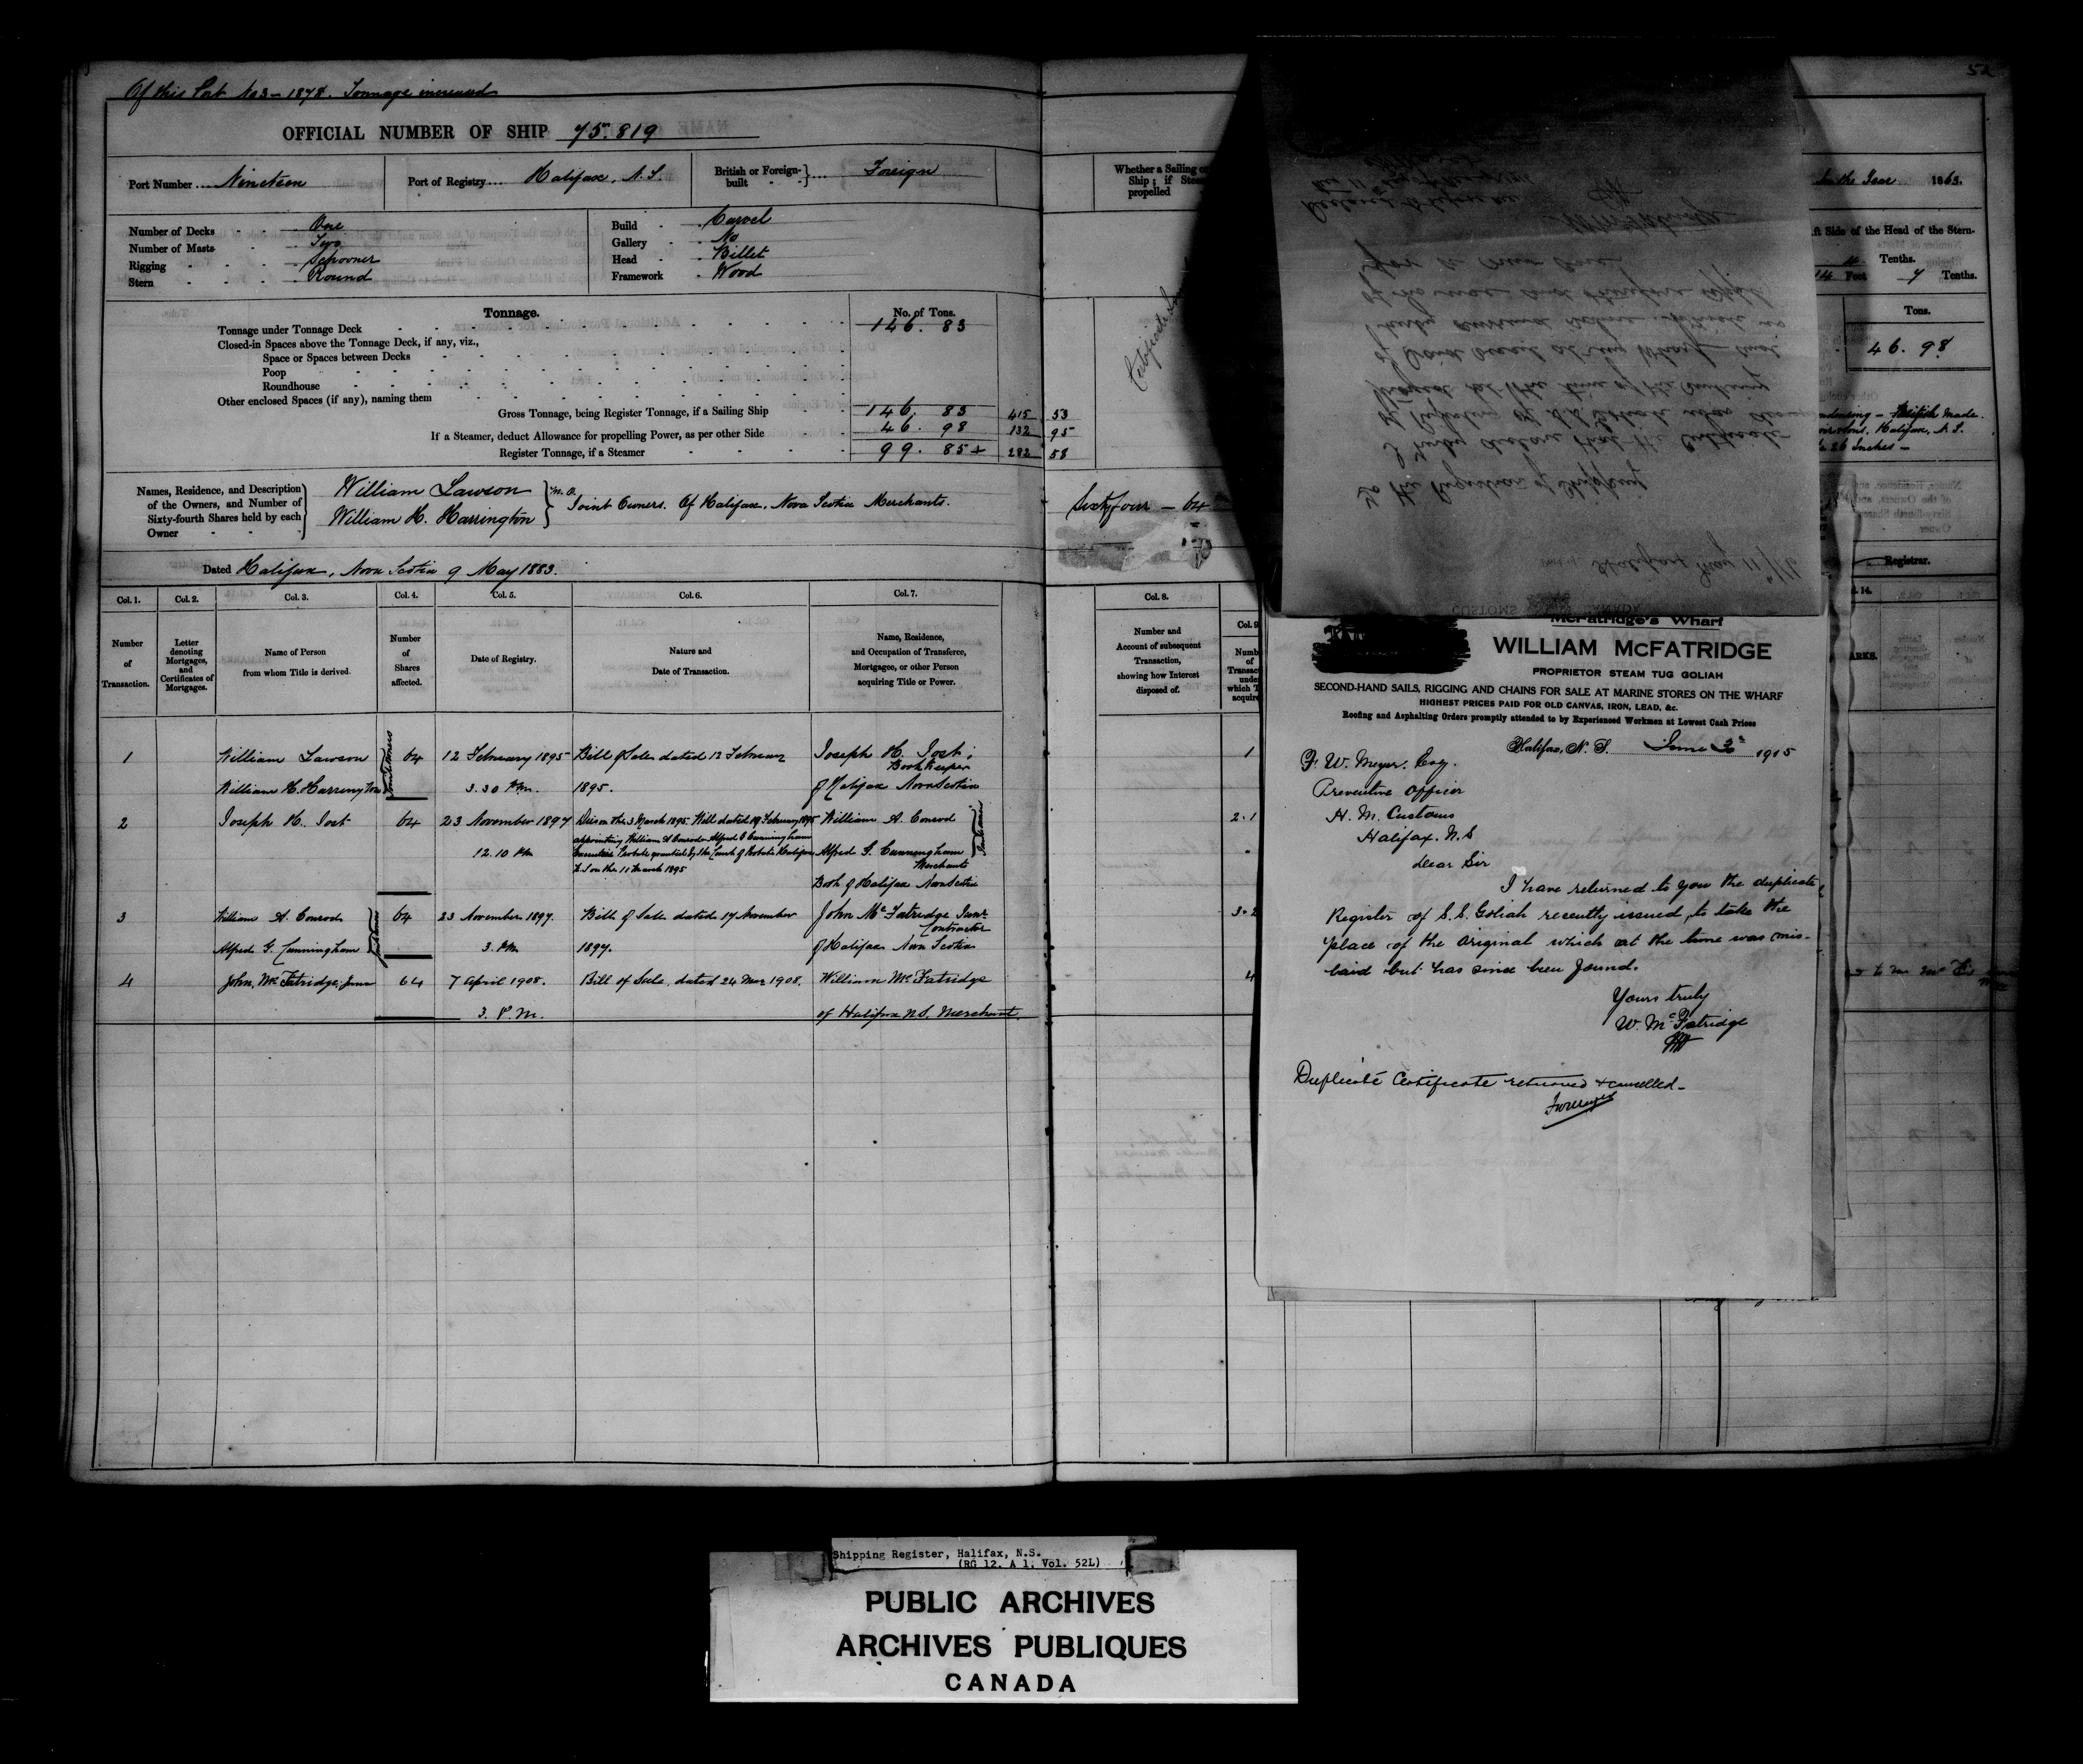 Of this Port No 3 – 1878. Tonnage increased
OFFICIAL NUMBER OF SHIP 75.819
Port Number Nineteen
Port of Registry Halifax, N.S.
British or Foreign-built Foreign
Number of Decks One
Number of Masts Two
Rigging Schooner
Stern Round
Build Carvel
Gallery No
Head Billet
Framework Wood
Tonnage.
No. of Tons.
Tonnage under Tonnage Deck 146. 83
Closed-in Spaces above the Tonnage Deck, if any, viz.,
Space or Spaces between Decks
Poop
Roundhouse
Other enclosed Spaces (if any), naming them
Gross Tonnage, being Register Tonnage, if a Sailing Ship 146. 83 415 53
If a Steamer, deduct Allowance for propelling Power, as per other Side 46. 98 132 95
Register Tonnage, if a Steamer 99. 85+ 282 58
Names, Residence, and Description
of the Owners, and Number of
Sixty-fourth Shares held by each
Owner
William Lawson
William H. Harrington
Joint Owners. Of Halifax, Nova Scotia Merchants.
Dated Halifax, Nova Scotia 9 May 1883.
Col. 1. Col. 2. Col. 3. Col. 4. Col. 5. Col. 6. Col. 7.
Number of Transaction.
Letter denoting Mortgages, and Certificates of Mortgages.
Name of Person from whom Title is derived.
Number of Shares affected.
Date of Registry.
Nature and Date of Transaction.
Name, Residence, and Occupation of Transferee, Mortgagee, or other Person acquiring Title or Power.
1 William Lawson 64 12 February 1895 Bill of Sale dated 12 February Joseph H. Jost;
Book keeper
William H. Harrington Joint Owners 3.30 P.m. 1895. of Halifax Nova Scotia
2 Joseph H. Jost 64 23 November 1897 Died on the 3 March 1895. Will dated 19 February 1895 William A. Conrod
appointing William A Conrod & Alfred G Cunningham
12.10 Pm Executors Probate granted by the Court of Probate Halifax Alfred G. Cunningham Joint Owners
Merchants
N.S on the 11 March 1895
Both of Halifax Nova Scotia
3 William A. Conrod 64 23 November 1897. Bill of Sale dated 17 November John McFatridge Junr
Contractor
Alfred G. Cunningham Joint Owners 3. Pm 1897. of Halifax Nova Scotia
4 John McFatridge, Junr 64 7 April 1908. Bill of Sale, dated 24 Mar 1908. William McFatridge
3. P.M. of Halifax N.S. Merchant.
Whether a Sailing or
Ship; if Steam
propelled
Sixty four – 64
Col. 8.
Number and
Account of subsequent
Transaction,
showing how Interest
disposed of.
Col. 9
1
2.1
3.2
4
52
In the Year 1863.
ft Side of the Head of the Stern-
4 Tenths.
14 Feet 7 Tenths.
Tons.
46. 98
Halifax, N.S.
26 Inches –
Registrar.
14.
ARKS.
CUSTOMS CANADA
Halifax May 11
To the Registrar of Shipping
I hereby declare that the Certificate
McFatridge's Wharf
WILLIAM McFATRIDGE
PROPRIETOR STEAM TUG GOLIAH
SECOND-HAND SAILS, RIGGING AND CHAINS FOR SALE AT MARINE STORES ON THE WHARF
HIGHEST PRICES PAID FOR OLD CANVAS, IRON, LEAD, &c.
Roofing and Asphalting Orders promptly attended to by Experienced Workmen at Lowest Cash Prices
Halifax, N. S. June 3 1915
F. W. Meyer. Esq.
Preventive Officer
H. M. Customs
Halifax. N.S
Dear Sir
I have returned to you the duplicate
Register of S.S. Goliah recently issued to take the
place of the original which at the time was mis-
laid but has since been found.
Yours truly
W. McFatridge
Duplicate Certificate returned & cancelled –
FWMeyer
Shipping Register, Halifax, N.S.
(RG 12, A 1, Vol. 52L)
PUBLIC ARCHIVES
ARCHIVES PUBLIQUES
CANADA